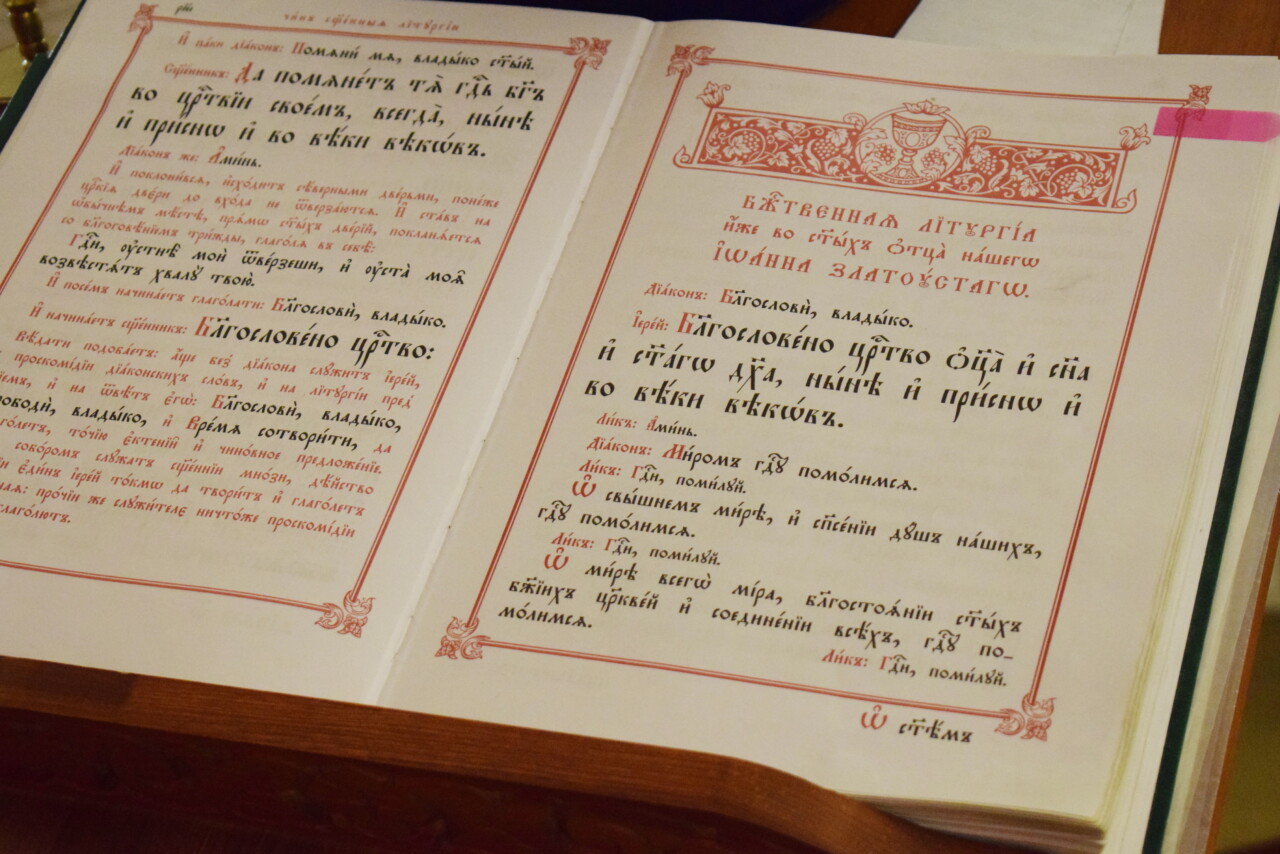 чи́нъ сщ҃е́нныѧ лїтꙋргі́и
И҆ па́ки дїа́конъ: Помѧни́ мѧ, влады́ко ст҃ы́й.
Сщ҃е́нникъ: Да помѧне́тъ тѧ̀ гдⷭ҇ь бг҃ъ
во црⷭ҇твїи свое́мъ, всегда̀, ны́нѣ
и҆ при́снѡ и҆ во вѣ́ки вѣкѡ́въ.
Дїа́конъ же: А҆ми́нь.
И҆ поклони́всѧ, и҆схо́дитъ сѣ́верными две́рьми, поне́же
цр҃кїѧ две́ри до вхо́да не ѿверза́ютсѧ. И҆ ста́въ на
ѡ҆бы́чнѣмъ мѣ́стѣ, прѧ́мѡ ст҃ы́хъ две́рїй, покланѧ́етсѧ
со бл҃гоговѣ́нїемъ три́жды, глаго́лѧ въ себѣ̀:
Гдⷭ҇и, ᲂу҆стнѣ̀ мои̑ ѿве́рзеши, и҆ ᲂу҆ста̀ моѧ̑
возвѣстѧ́тъ хвалꙋ̀ твою̀.
И҆ посе́мъ начина́етъ глаго́лати: Бл҃гословѝ, влады́ко.
И҆ начина́етъ сщ҃е́нникъ: Бл҃гослове́но црⷭ҇тво:
Вѣ́дати подоба́етъ: а҆́ще без̾ дїа́кона слꙋ́житъ і҆ере́й,
проскомі́дїи дїа́конскихъ сло́въ, и҆ на лїтꙋргі́и пред
и҆ на ѿвѣ́тъ є҆гѡ̀: Бл҃гословѝ, влады́ко,
влады́ко, и҆ Вре́мѧ сотвори́ти, да
то́чїю є҆ктенїи̑ и҆ чино́вное предложе́нїе.
собо́ромъ слꙋ́жатъ сщ҃е́нніи мно́зи, дѣ́йство
є҆ди́нъ і҆ере́й то́кмѡ да твори́тъ и҆ глаго́летъ
про́чїи же слꙋжи́телє ничто́же проскомі́дїи
глаго́лютъ.
Бжⷭ҇твеннаѧ лїтꙋргі́а
и҆́же во ст҃ы́хъ ѻ҆тца̀ на́шегѡ
і҆ѡа́нна златоꙋ́стагѡ.
Дїа́конъ: Бл҃гословѝ, влады́ко.
І҆ере́й: Бл҃гослове́но црⷭ҇тво ѻ҆ц҃а̀ и҆ сн҃а
и҆ ст҃а́гѡ дх҃а, ны́нѣ и҆ при́снѡ и҆
во вѣ́ки вѣкѡ́въ.
Ли́къ: А҆ми́нь.
Дїа́конъ: Ми́ромъ гдⷭ҇ꙋ помо́лимсѧ.
Ли́къ: Гдⷭ҇и, поми́лꙋй.
Ѽ свы́шнемъ ми́рѣ, и҆ сп҃се́нїи дꙋ́шъ на́шихъ,
гдⷭ҇ꙋ помо́лимсѧ.
Ли́къ: Гдⷭ҇и, поми́лꙋй.
Ѽ ми́рѣ всегѡ̀ мі́ра, бл҃гостоѧ́нїи ст҃ы́хъ
бж҃їихъ цр҃кве́й и҆ соедине́нїи всѣ́хъ, гдⷭ҇ꙋ по-
мо́лимсѧ.
Ли́къ: Гдⷭ҇и, поми́лꙋй.
Ѽ ст҃ѣ́мъ